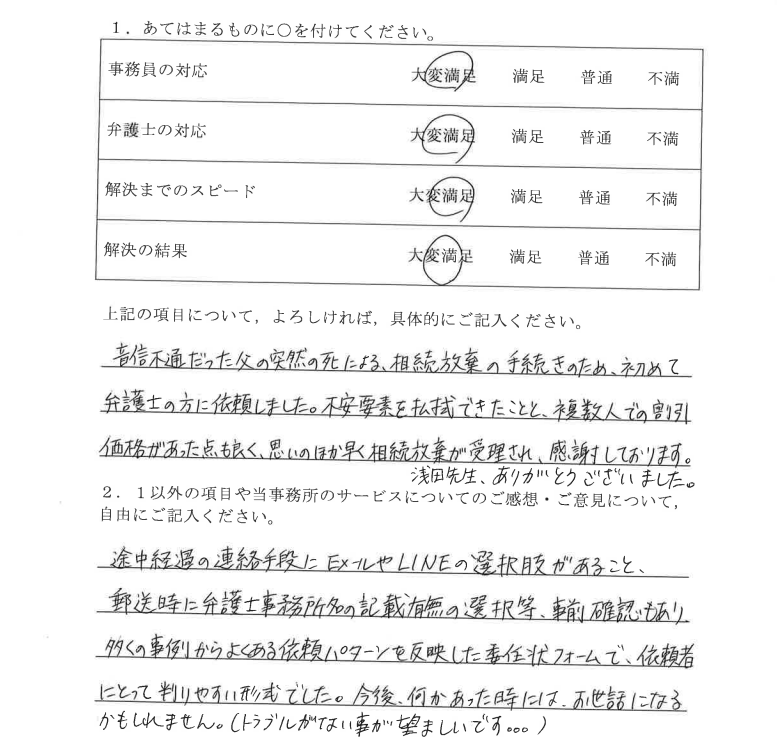 1．あてはまるものに○を付けてください。
事務員の対応 大変満足 満足 普通 不満
弁護士の対応 大変満足 満足 普通 不満
解決までのスピード 大変満足 満足 普通 不満
解決の結果 大変満足 満足 普通 不満
上記の項目について，よろしければ，具体的にご記入ください。
音信不通だった父の突然の死による、相続放棄の手続きのため、初めて
弁護士の方に依頼しました。不安要素を払拭できたことと、複数人での割引
価格があった点も良く、思いのほか早く相続放棄が受理され、感謝しております。
浅田先生、ありがとうございました。
2．1以外の項目や当事務所のサービスについてのご感想・ご意見について，
自由にご記入ください。
途中経過の連絡手段にEメールやLINEの選択肢があること、
郵送時に弁護士事務所名の記載有無の選択等、事前確認もあり
多くの事例からよくある依頼パターンを反映した委任状フォームで、依頼者
にとって判りやすい形式でした。今後、何かあった時には、お世話になる
かもしれません。(トラブルがない事が望ましいです...)